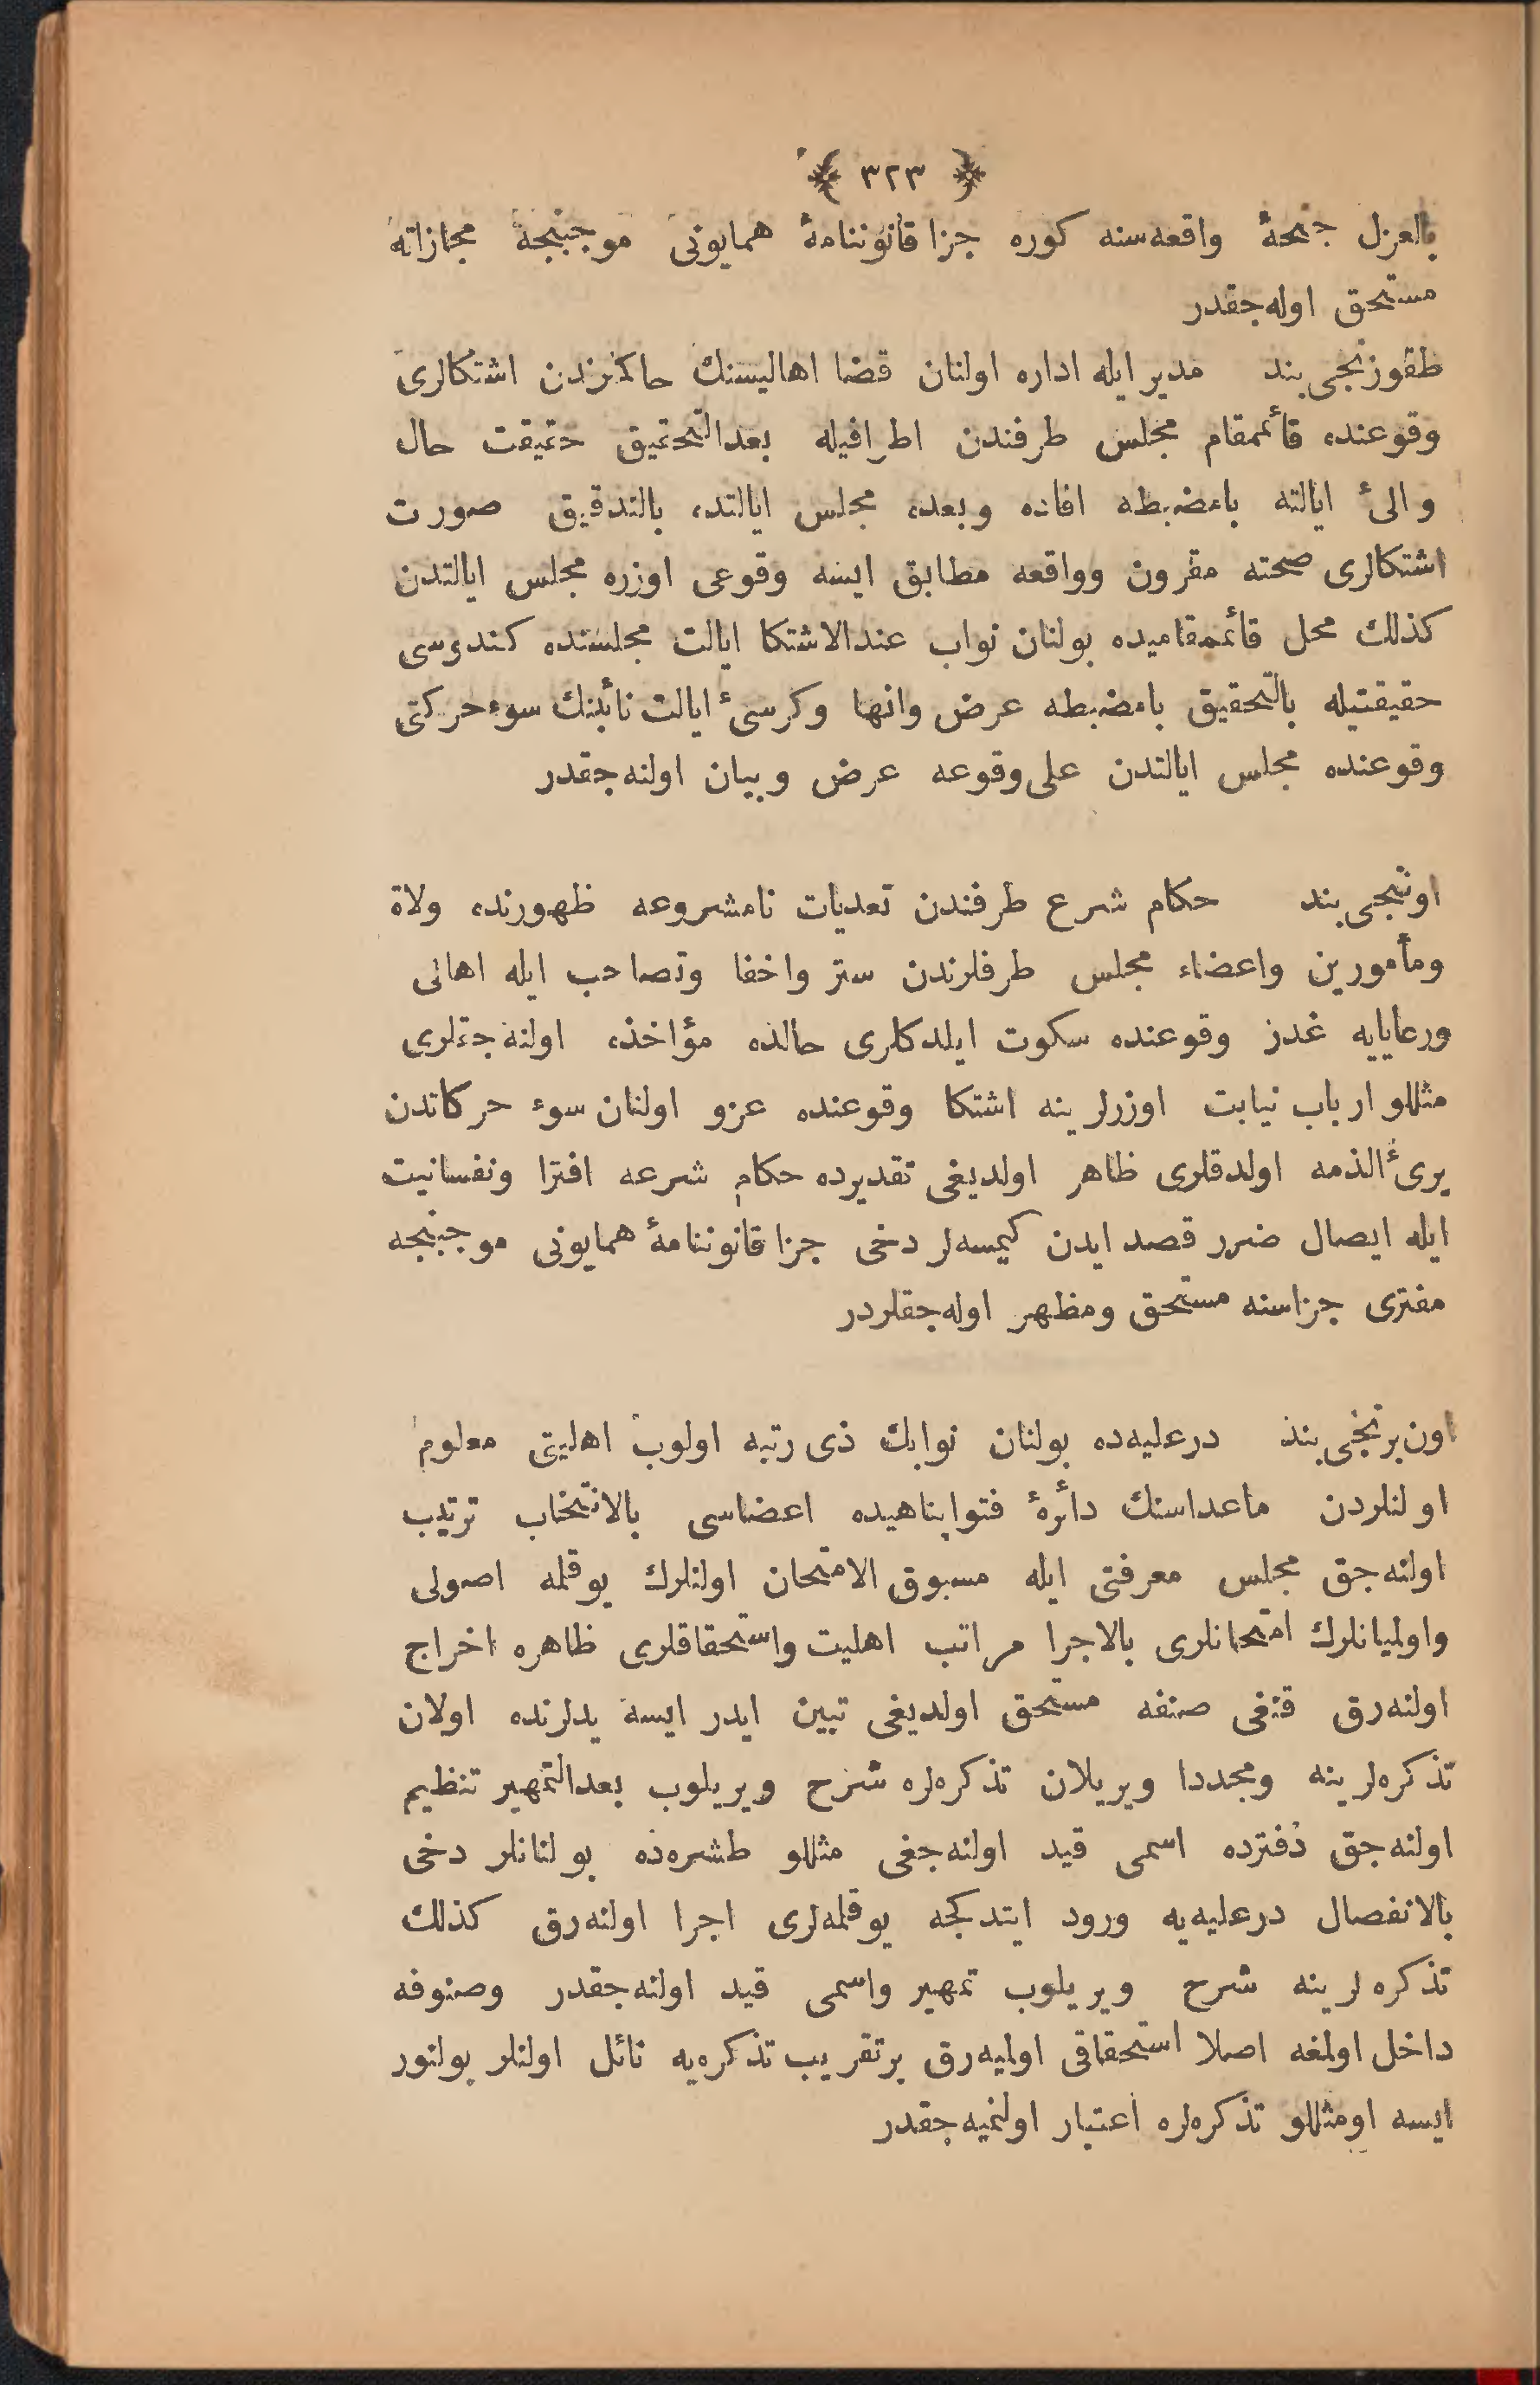 ﴿ ٣٢٣ ﴾
بالعزل جنحهٔ واقعه‌سنه كوره جزا قانوننامهٔ همايونى موجبنجه مجازاته
مستحق اوله‌جقدر
طقوزنجى بند مدير ايله اداره اولنان قضا اهاليسنك حاكملرندن اشتكالرى
وقوعنده قائممقام مجلس طرفندن اطرافيله بعدالتحقيق حقيقت حال
والىٔ ايالته بامضبطه افاده وبعده مجلس ايالتده بالتدقيق صورت
اشتكالرى صحته مقرون وواقعه مطابق ايسه وقوعى اوزره مجلس ايالتدن
كذلك محل قائممقاميده بولنان نواب عندالاشتكا ايالت مجلسنده كندوسى
حقيقتيله بالتحقيق بامضبطه عرض وانها وكرسىٔ ايالت نائبنك سوء حركتى
وقوعنده مجلس ايالتدن على وقوعه عرض وبيان اولنه‌جقدر
اوننجى بند حكام شرع طرفندن تعديات نامشروعه ظهورنده ولاة
ومأمورين واعضاء مجلس طرفلرندن ستر واخفا وتصاحب ايله اهالى
ورعايايه غدر وقوعنده سكوت ايلدكلرى حالده مؤاخذه اولنه‌جقلرى
مثللو ارباب نيابت اوزرلرينه اشتكا وقوعنده عزو اولنان سوء حركاتدن
برىٔ الذمه اولدقلرى ظاهر اولديغى تقديرده حكام شرعه افترا ونفسانيت
ايله ايصال ضرر قصد ايدن كيمسه‌لر دخى جزا قانوننامهٔ همايونى موجبنجه
مفترى جزاسنه مستحق ومظهر اوله‌جقلردر
اون برنجى بند درعليه‌ده بولنان نوابك ذى رتبه اولوب اهليتى معلوم
اولنلردن ماعداسنك دائرهٔ فتواپناهيده اعضاسى بالانتخاب ترتيب
اولنه‌جق مجلس معرفتى ايله مسبوق الامتحان اولنلرك يوقلمه اصولى
واولميانلرك امتحانلرى بالاجرا مراتب اهليت واستحقاقلرى ظاهره اخراج
اولنه‌رق قنغى صنفه مستحق اولديغى تبين ايدر ايسه يدلرنده اولان
تذكره‌لرينه ومجددا ويريلان تذكره‌لره شرح ويريلوب بعدالتمهير تنظيم
اولنه‌جق دفترده اسمى قيد اولنه‌جغى مثللو طشره‌ده بولنانلر دخى
بالانفصال درعليه‌يه ورود ايتدكجه يوقلمه‌لرى اجرا اولنه‌رق كذلك
تذكره‌لرينه شرح ويريلوب تمهير واسمى قيد اولنه‌جقدر وصنوفه
داخل اولمغه اصلا استحقاقى اولميه‌رق برتقريب تذكره‌يه نائل اولنلر بولنور
ايسه اومثللو تذكره‌لره اعتبار اولنميه‌جقدر